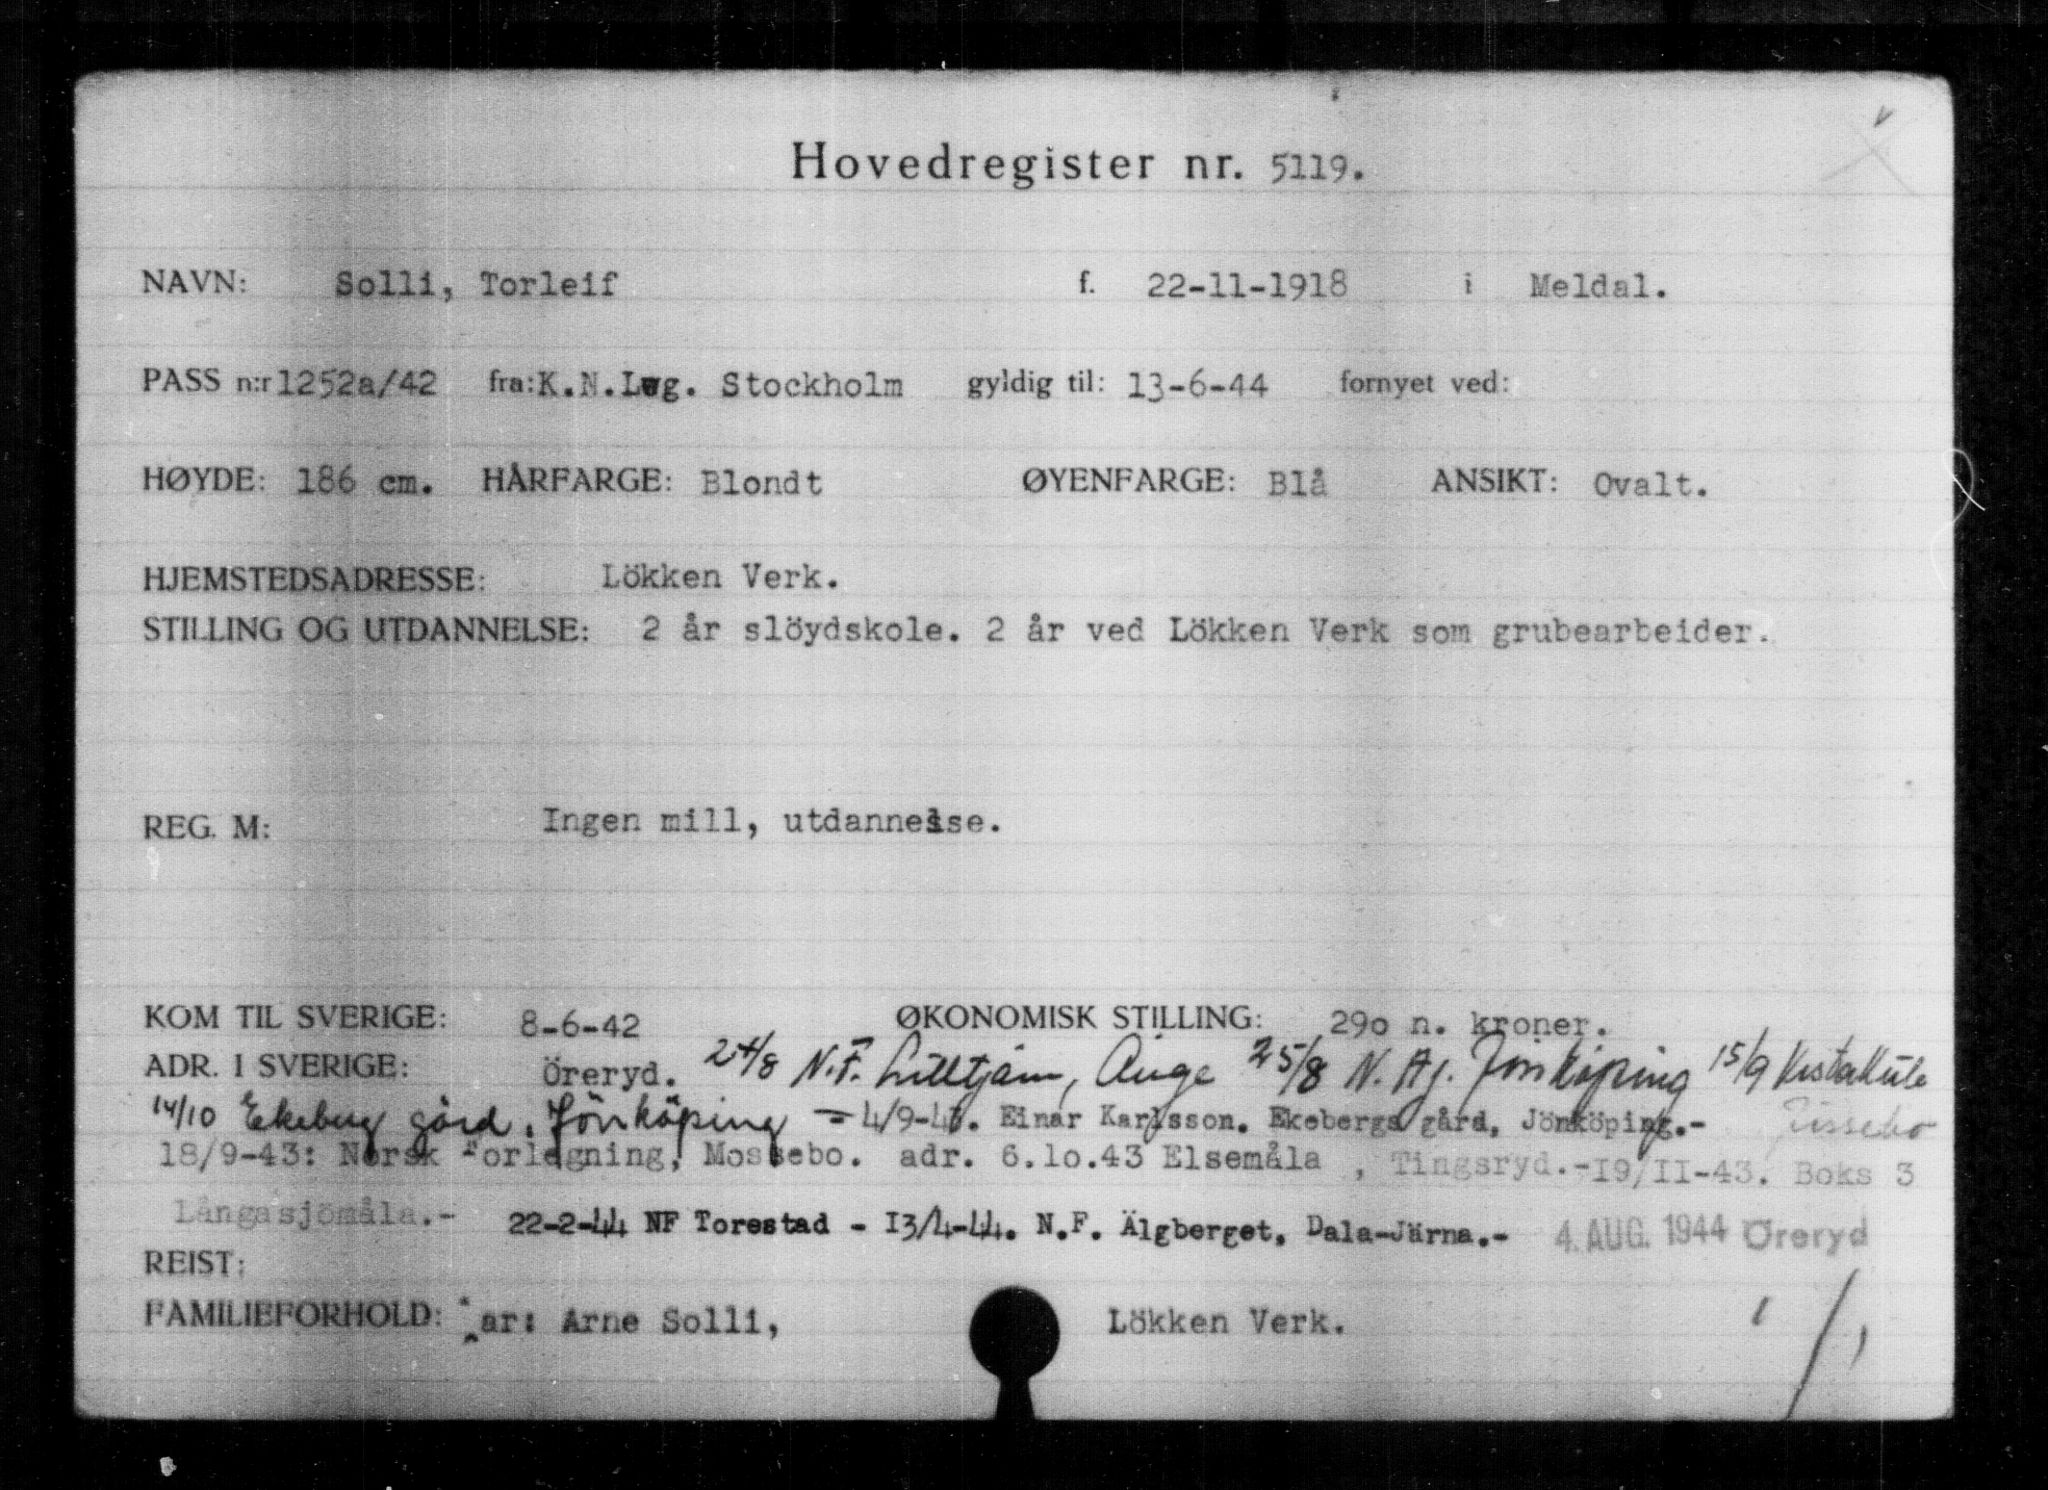 Hovedregister nr. 5119.
NAVN: Solli, Torleif f. 22-11-1918 i Meldal.
PASS n:r 1252a/42 fra: K.N.Leg. Stockholm gyldig til: 13-6-44 fornyet ved:
HØYDE: 186 cm. HÅRFARGE: Blondt ØYENFARGE: Blå ANSIKT: Ovalt.
HJEMSTEDSADRESSE: Lökken Verk.
STILLING OG UTDANNELSE: 2 år slöydskole. 2 år ved Lökken Verk som grubearbeider.
REG. M: Ingen mill, utdannelse.
KOM TIL SVERIGE: 8-6-42 ØKONOMISK STILLING: 29o n. kroner.
ADR. I SVERIGE: Öreryd. 24/8 N.F. Lilltjärn, Ånge 25/8 N. Aj. Jönköping 15/9
14/10 Ekeberg gård, Jönköping - 4/9-43. Einar Karlsson. Ekebergs gård, Jönköping.-
18/9-43: Norsk Forlegning, Mossebo. adr. 6.1o.43 Elsemåla , Tingsryd.-19/II-43. Boks 3
Långasjömåla.- 22-2-44 NF Torestad - I3/4-44. N.F. Älgberget, Dala-Järna.- 4. AUG. 1944 Öreryd
REIST:
FAMILIEFORHOLD: Far: Arne Solli, Lökken Verk.